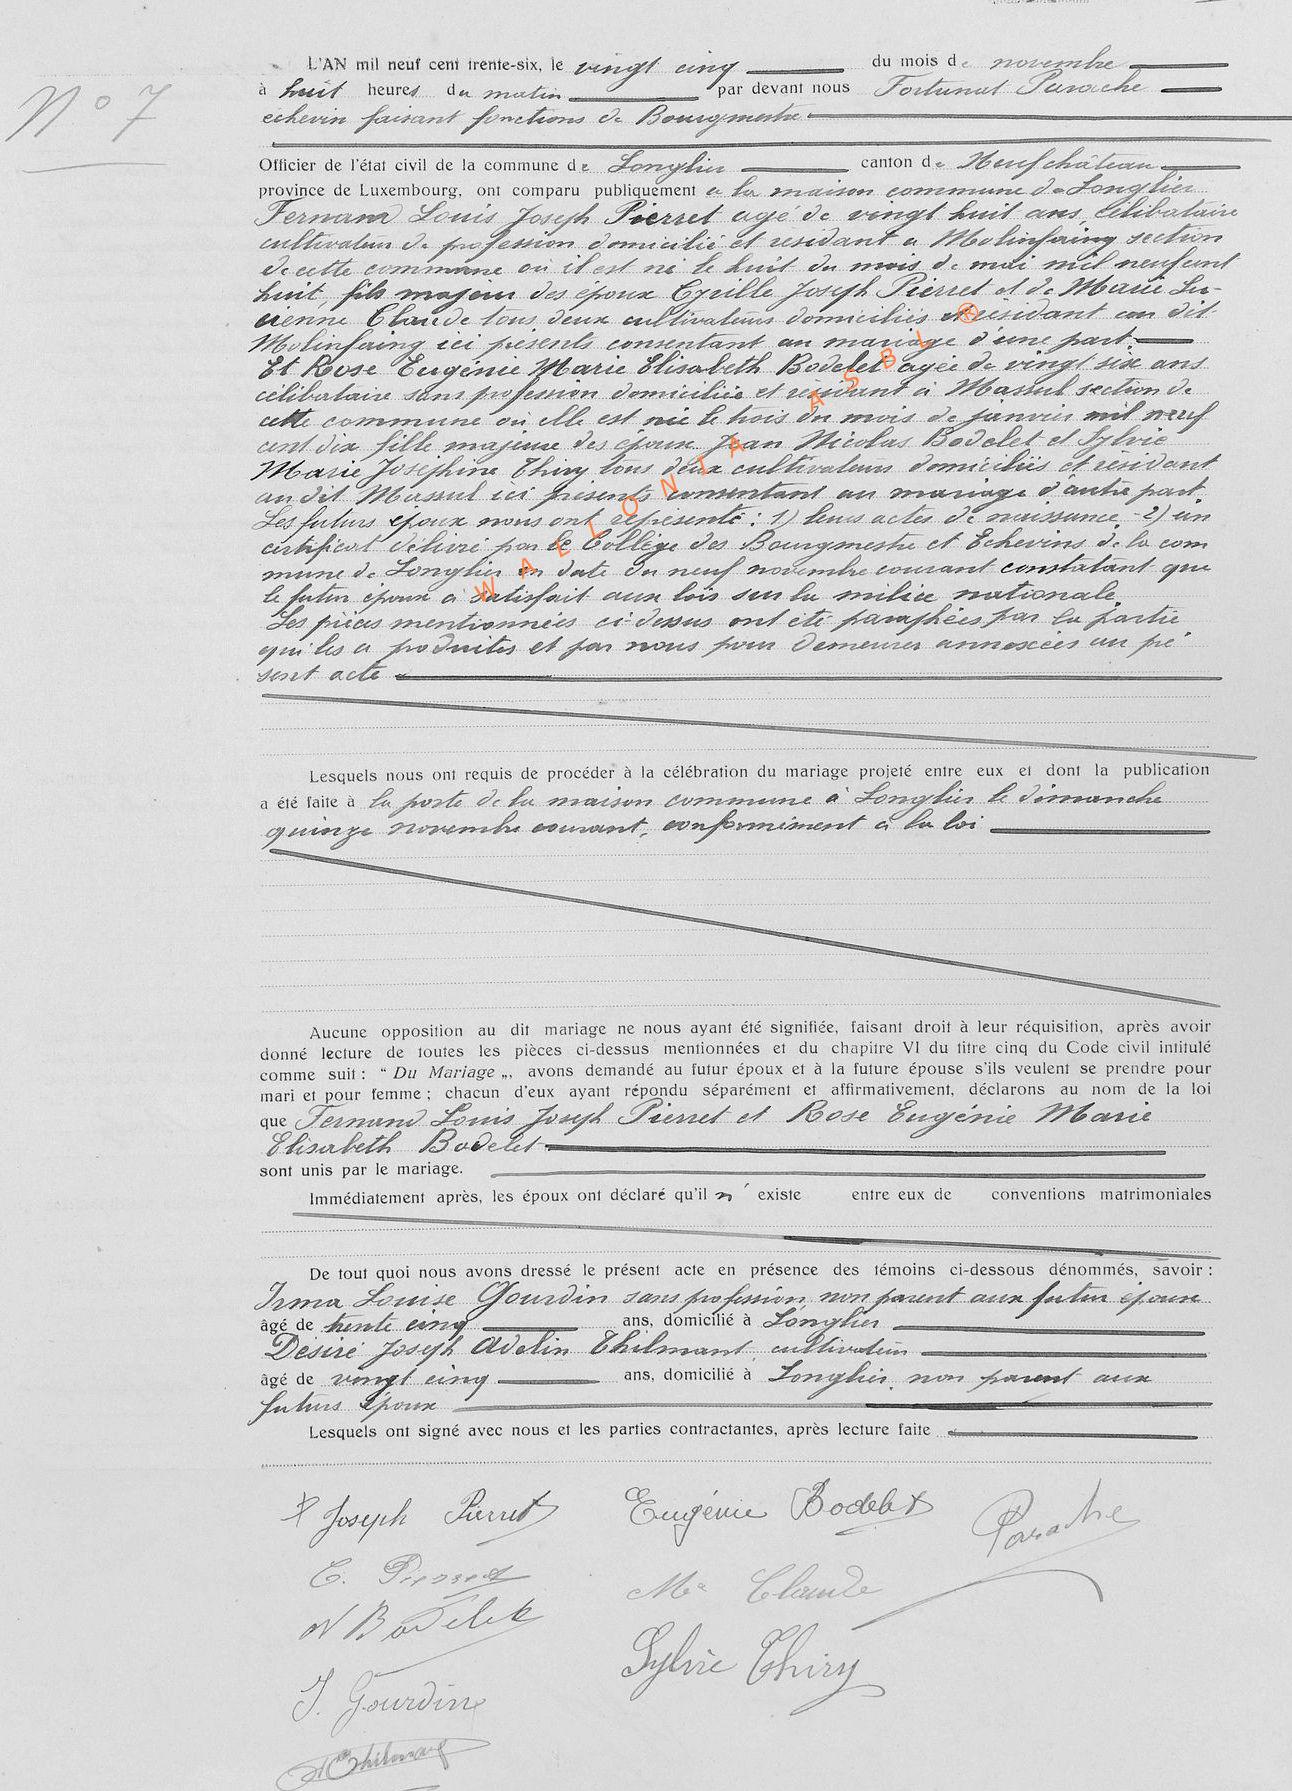 N° 7
L'AN mil neuf cent trente-six, le vingt cinq du mois de novembre
à huit heures du matin par devant nous Fortunat Parache
échevin faisant fonctions de Bourgmestre
Officier de l'état civil de la commune de Longlier canton de Neufchâteau
province de Luxembourg, ont comparu publiquement à la maison commune de Longlier
Fernand Louis Joseph Pierret agé de vingt huit ans, célibataire
cultivateur de profession domicilié et résidant à Molinfaing section
de cette commune où il est né le huit du mois de mai mil neuf cent
huit, fils majeur des époux Cyrille Joseph Pierret et de Marie Lu-
cienne Claude tous deux cultivateurs domiciliés et résidant au dit
Molinfaing ici présents consentant au mariage d'une part.
Et Rose Eugénie Marie Elisabeth Bodelet agée de vingt six ans
célibataire sans profession domiciliée et résidant à Massul section de
cette commune où elle est née le trois du mois de janvier mil neuf
cent dix fille majeure des époux Jean Nicolas Bodelet et Sylvie
Marie Joséphine Thiry tous deux cultivateurs domiciliés et résidant
au dit Massul ici présents consentant au mariage d'autre part.
Les futurs époux nous ont représenté : 1) leurs actes de naissance - 2) un
certificat délivré par le Collège des Bourgmestre et Echevins de la com
mune de Longlier en date du neuf novembre courant constatant que
le futur époux a satisfait aux lois sur la milice nationale
Les pièces mentionnées ci-dessus ont été paraphées par la partie
qui les a produites et par nous pour demeurer annexées au pré
sent acte
WALLONIA ASBL ®
Lesquels nous ont requis de procéder à la célébration du mariage projeté entre eux et dont la publication
a été faite à la porte de la maison commune à Longlier le dimanche
quinze novembre courant, conformément à la loi
Aucune opposition au dit mariage ne nous ayant été signifiée, faisant droit à leur réquisition, après avoir
donné lecture de toutes les pièces ci-dessus mentionnées et du chapitre VI du titre cinq du Code civil intitulé
comme suit : “ Du Mariage „, avons demandé au futur époux et à la future épouse s'ils veulent se prendre pour
mari et pour femme ; chacun d'eux ayant répondu séparément et affirmativement, déclarons au nom de la loi
que Fernand Louis Joseph Pierret et Rose Eugénie Marie
Elisabeth Bodelet
sont unis par le mariage.
Immédiatement après, les époux ont déclaré qu'il n' existe entre eux de conventions matrimoniales
De tout quoi nous avons dressé le présent acte en présence des témoins ci-dessous dénommés, savoir :
Irma Louise Gourdin sans profession, non parent aux futur époux
âgé de trente cinq ans, domicilié à Longlier
Désiré Joseph Adelin Thilmant, cultivateur
âgé de vingt cinq ans, domicilié à Longlier, non parent aux
futurs époux
Lesquels ont signé avec nous et les parties contractantes, après lecture faite
Joseph Pierret Eugénie Bodelet Parache
C. Pierret Mie Claude
N Bodelet Sylvie Thiry
I. Gourdin
Thilmant